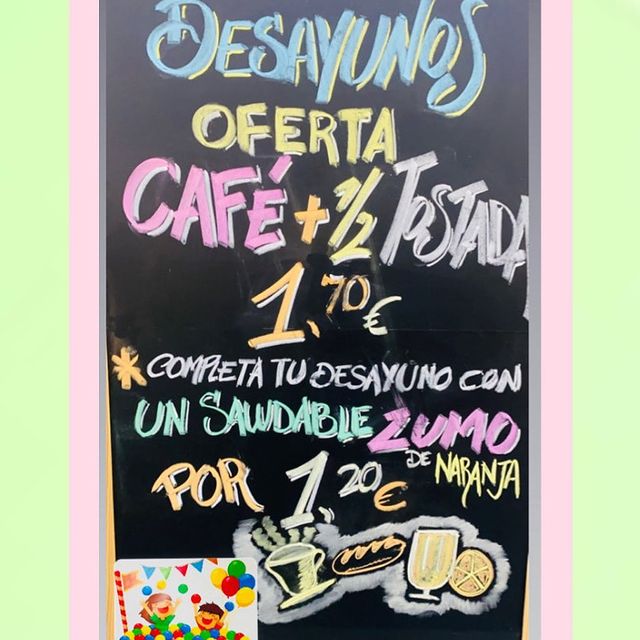 DESAYUNOS
OFERTA
CAFÉ + 1/2 TOSTADA
1,70 €
* COMPLETA TU DESAYUNO CON
UN SALUDABLE ZUMO
DE NARANJA
POR 1,20 €